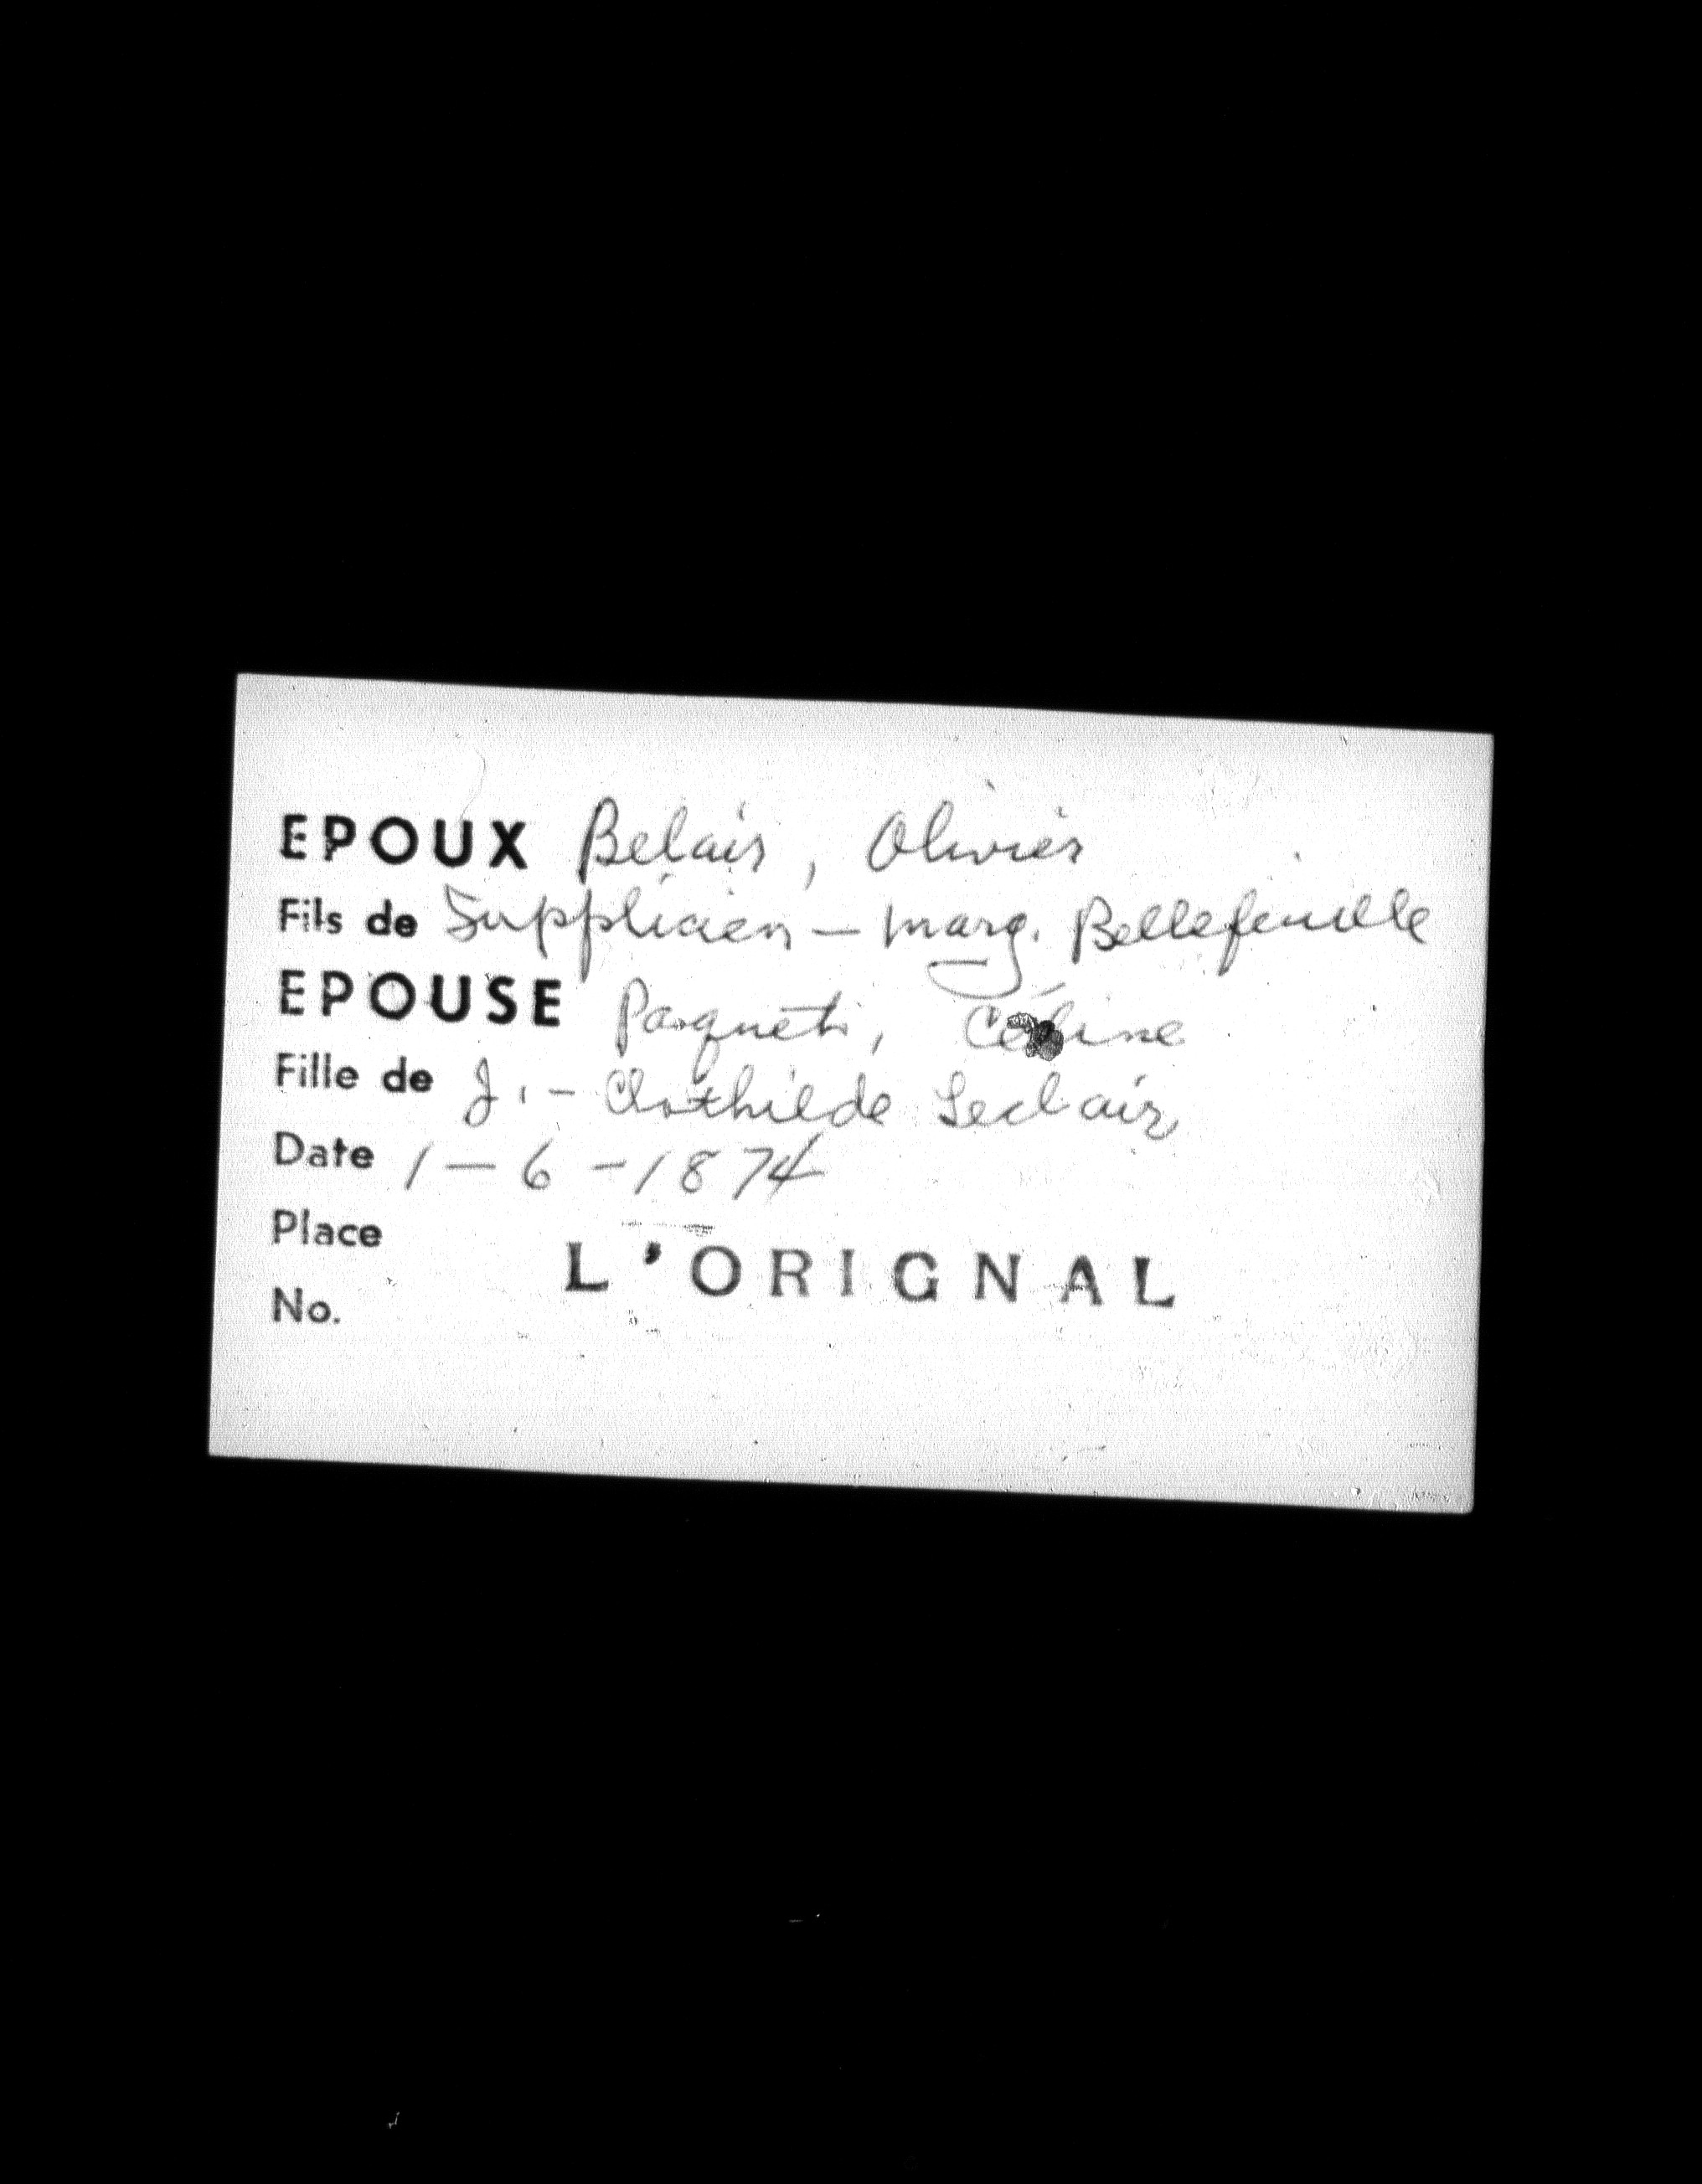 EPOUX Belair, Olivier
Fils de Supplicien - Marg. Bellefeuille
EPOUSE Paquette, Céline
Fille de J. - Clothilde Leclair
Date 1-6-1874
Place L'ORIGNAL
No.